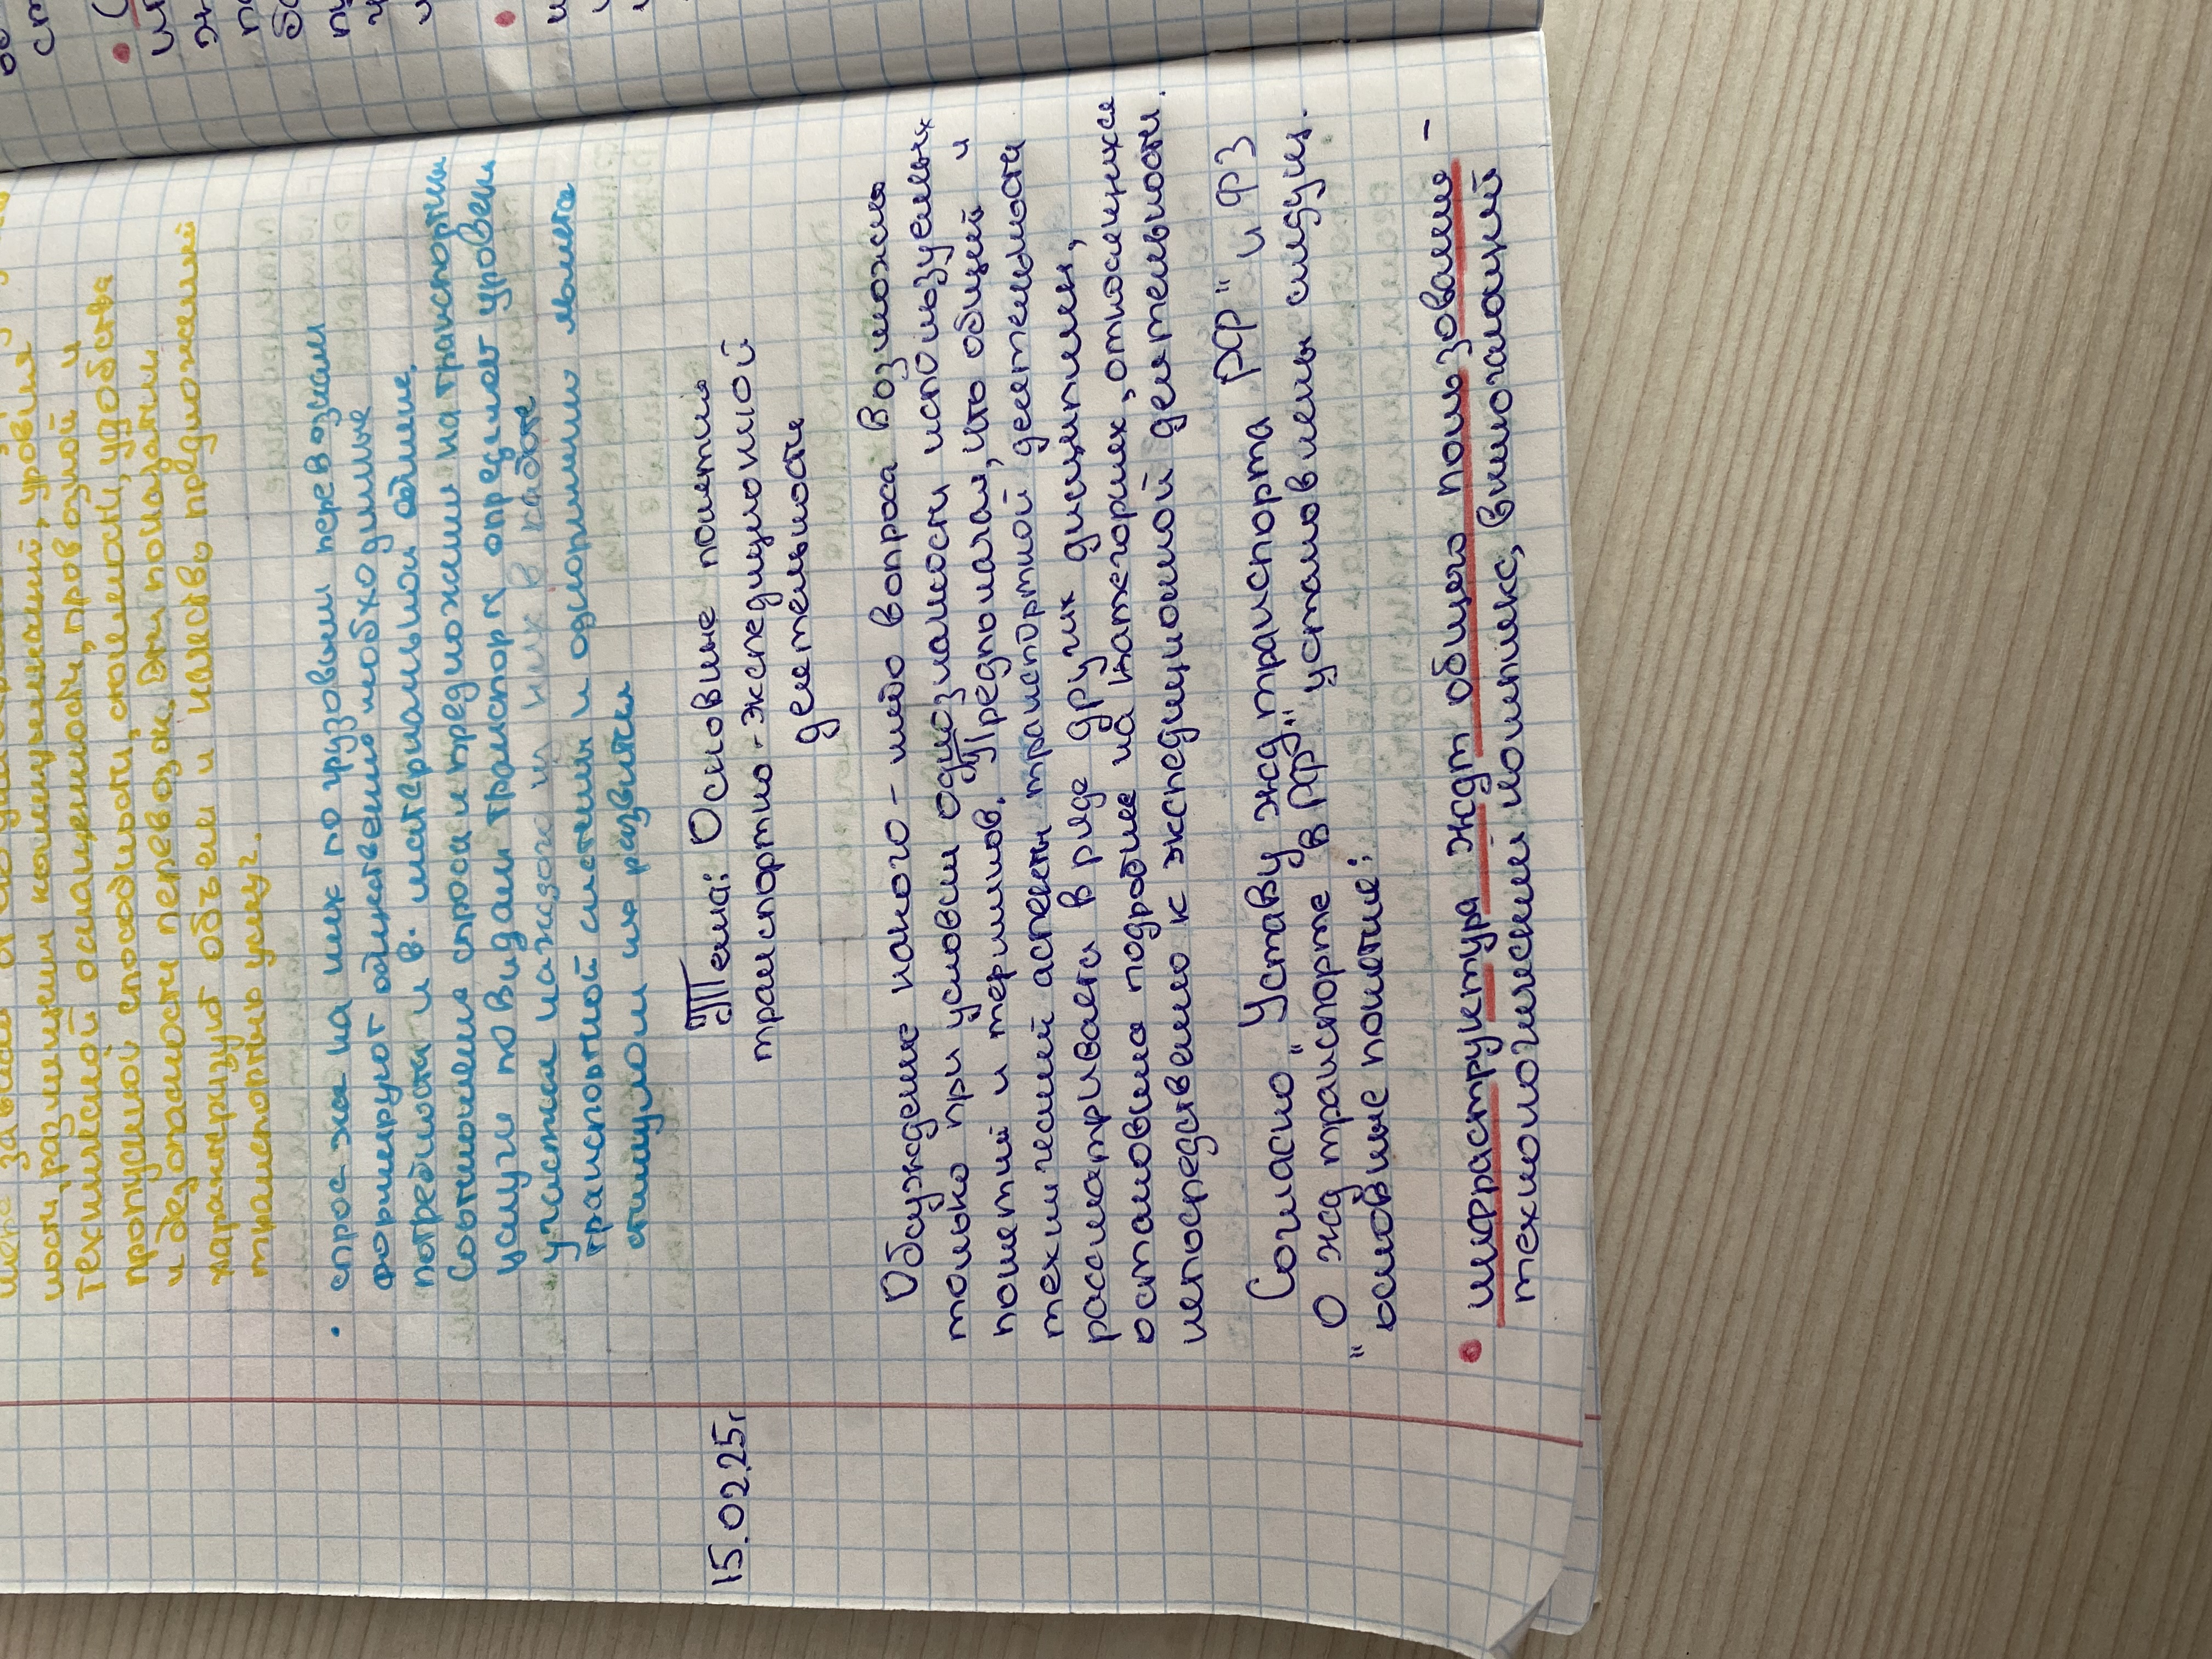 ност, размещении коммуникаций, уровня
технической оснащенности, провозной и
пропускной способности, скоменоти, удобства
и безопасности перевозок. Эти показатели
характеризуют объем и качество предложений
транспортно услуг.
• спрос жа на них по грузовым перевозкам
формируют общественно необходимые
потребности в. материальном обмене.
Соотношение спроса и предложении на транспортны
услуги по видам транспорта определяет уровень
участка каждого из них в работе
транспортной системы и одновременно является
стимулом их развития
15.02.25г
Тема: Основные понятия
транспортно-экспедиционной
деятельности
Обсуждение какого-либо вопроса возможно
только при условии однозналности используемых
понятий и терминов. Предполагая, что общий и
технический аспекты транспортной деятельности
рассматривается в ряде других дисциплин,
остановимо подробнее на категориях, относящихся
непосредственно к экспедиционной деятельности.
Согласно "Уставу жд транспорта РФ" и ФЗ
"О жд транспорте в РФ" установлены следущ.
основные понятие:
• инфраструктура ждт общего пользование -
технологический комплекс, включающий